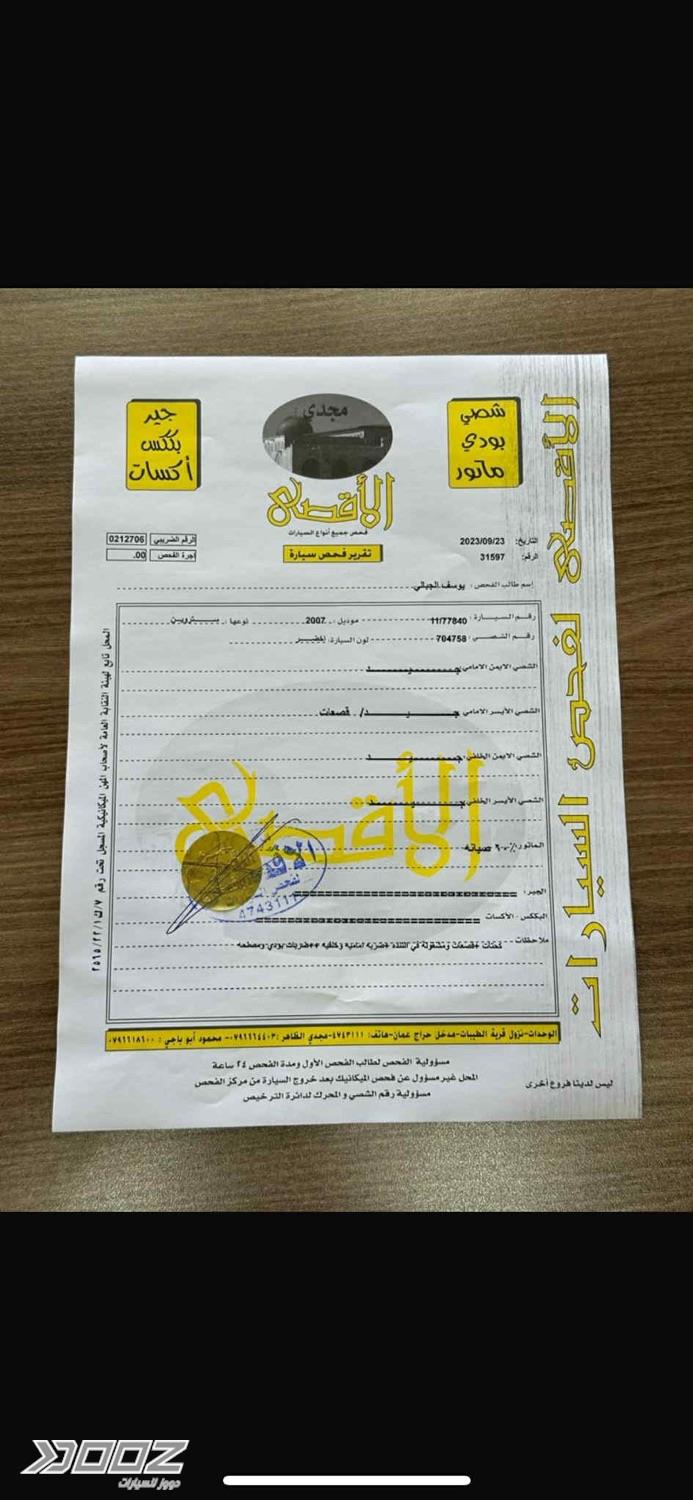 شصي
بودي
ماتور
مجدي
الأقصى
فحص جميع أنواع السيارات
تقرير فحص سيارة
جير
بكس
أكسات
التاريخ: 2023/09/23
الرقم: 31597
الرقم الضريبي 0212706
اجرة الفحص .00
إسم طالب الفحص: يوسف الجبالي
رقم السيارة: 11/77840 موديل: 2007 نوعها: سيتروين
رقم الشصي: 704758 لون السيارة: اخضر
الشصي الايمن الامامي: جيد
الشصي الأيسر الامامي: جيد/. قصعات
الشصي الايمن الخلفي: جيد
الشصي الأيسر الخلفي: جيد
الماتور: ٦٠٪ صيانه
الجير: ==========
البكس - الأكسات ==========
ملاحظات
الأقصى
4743111
الوحدات-نزول قرية الطيبات-مدخل حراج عمان-هاتف: ٤٧٤٣١١١-مجدي الظاهر: ٠٧٩٦٦٦٤٤٠٣- محمود أبو ياجي: ٠٧٩٦٦١٨٦٠٠
مسؤولية الفحص لطالب الفحص الأول ومدة الفحص ٢٤ ساعة
المحل غير مسؤول عن فحص الميكانيك بعد خروج السيارة من مركز الفحص
مسؤولية رقم الشصي و المحرك لدائرة الترخيص
ليس لدينا فروع أخرى
الأقصى لفحص السيارات
المحل تابع لهيئة النقابة العامة لأصحاب المهن الميكانيكية المسجل تحت رقم
الأقصى
DOOZ
دووز للسيارات